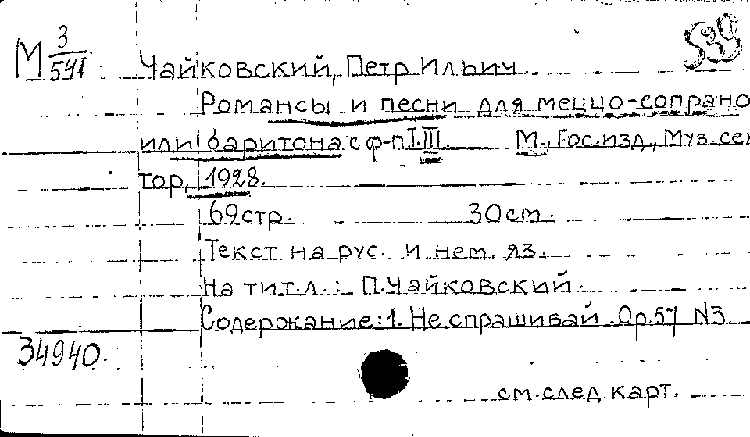 М 3/591 Чайковский, Петр Ильич 539
Романсы и песни для меццо-сопрано
или баритона с ф-п I.III М., Гос.изд., Муз.сек
тор, 1928.
69стр. 30см.
Текст на рус. и нем. яз.
На титл.: П.Чайковский.
Содержание: 1. Не спрашивай. Op.57 N3
34940.
см.след карт.